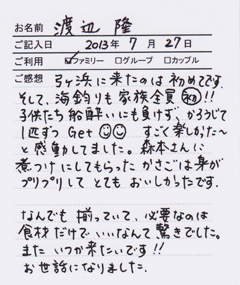 お名前 渡辺 隆
ご記入日 2013年 7月 27日
ご利用 ☑ファミリー □グループ □カップル
ご感想 弓ヶ浜に来たのは初めてです。
そして、海釣りも家族全員 初!!
子供たち船酔いにも負けず、かろうじて
1匹ずつ Get すごく楽しかった〜
と感動してました。森本さんに
煮つけにしてもらったかさごは身が
プリプリして とても おいしかったです。
なんでも揃っていて、必要なのは
食材だけで いいなんて 驚きでした。
また いつか来たいです!!
お世話になりました。